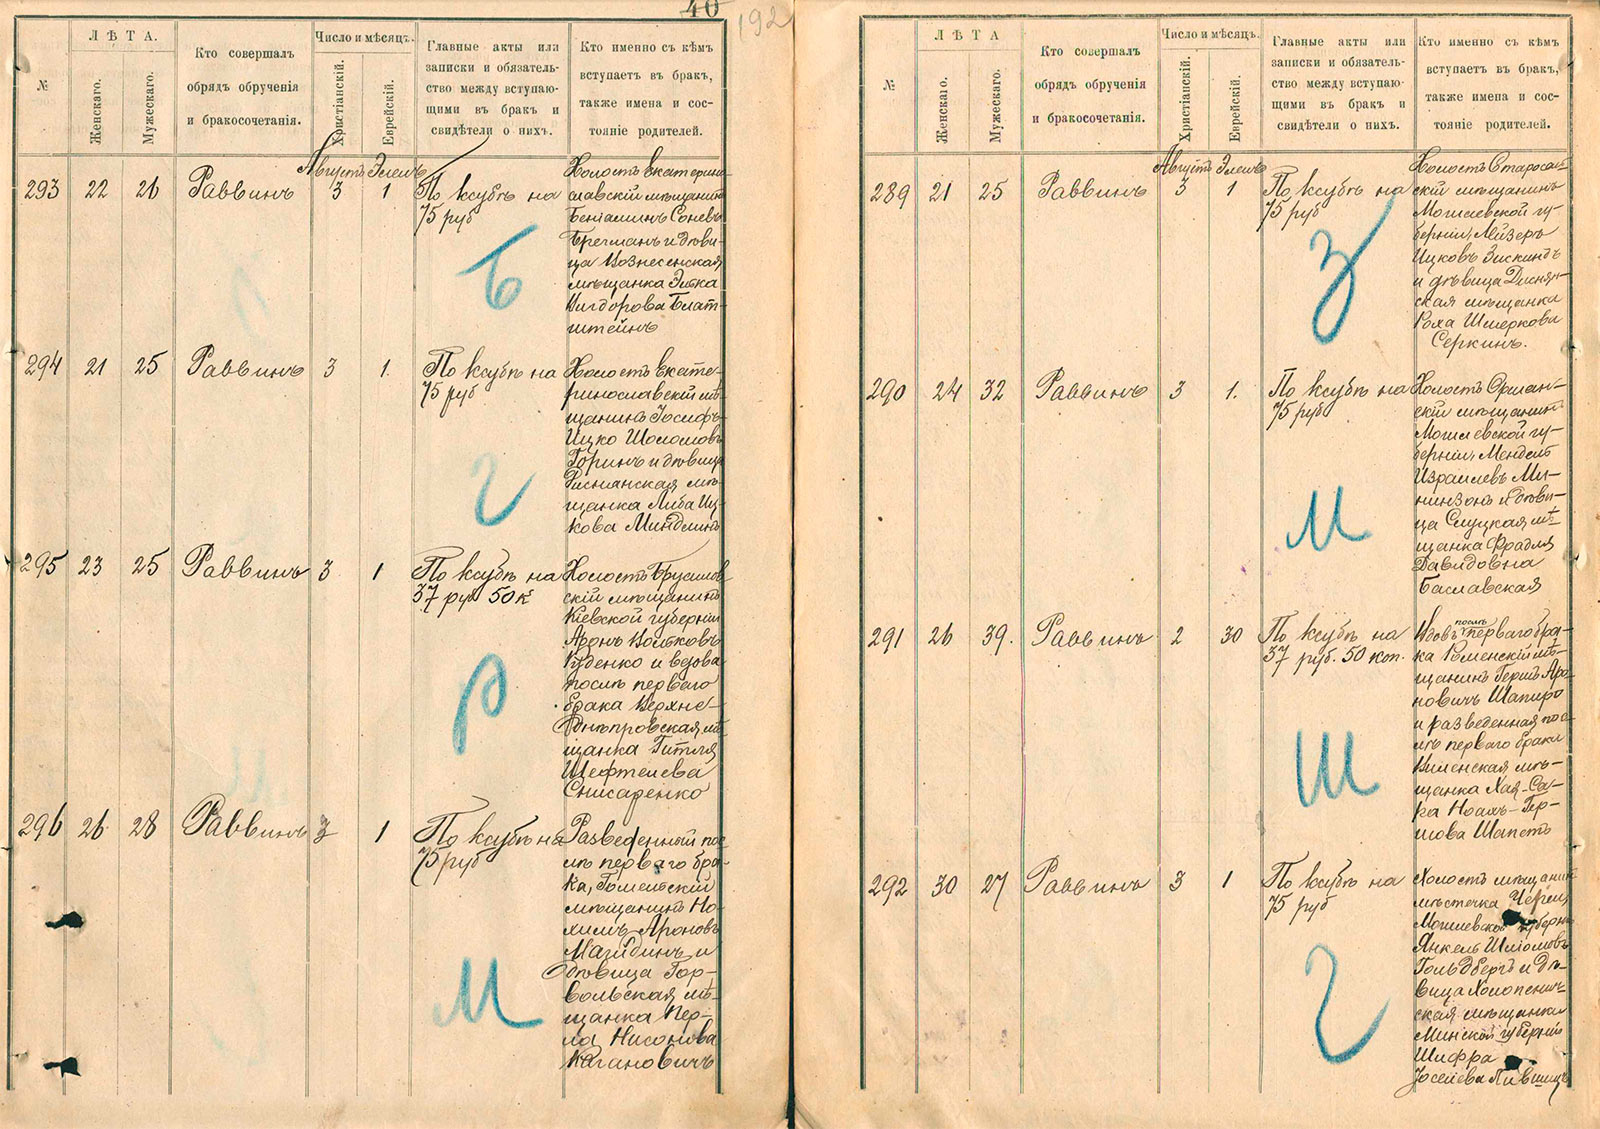 40
192
№
ЛѢТА.
Женскаго.
Мужескаго.
Кто совершалъ
обрядъ обрученія
и бракосочетанія.
Число и мѣсяцъ.
Христіанскій.
Еврейскій.
Главные акты или
записки и обязатель-
ство между вступаю-
щими въ бракъ и
свидѣтели о нихъ.
Кто именно съ кѣмъ
вступаетъ въ бракъ,
также имена и сос-
тояніе родителей.
Августъ Элелъ
293 22 26 Раввинъ 3 1 По ксубѣ на
75 руб
Б
Холостъ Екатерино-
славскій мѣщанинъ
Беніаминъ
Брегманъ и дѣви-
ца Вознесенская
мѣщанка Этка
Вигдорова Блат-
штейнъ
294 21 25 Раввинъ 3 1. По ксубѣ на
75 руб
Г
Холостъ Екате-
ринославскій мѣ-
щанинъ Іосифъ-
Ицко Шоломовъ
Горинъ и дѣвица
мѣ-
щанка Либа Иц-
кова Миндлинъ
295 23 25 Раввинъ 3 1 По ксубѣ на
37 руб 50 к
Р
Холостъ Брусилов-
скій мѣщанинъ
Кіевской губерніи
Аронъ Волковъ
Руденко и вдова
послѣ перваго
брака Верхне-
Днѣпровская мѣ-
щанка Гитля
Шефтелева
Снисаренко
296 26 28 Раввинъ 3 1 По ксубѣ на
75 руб
М
Разведенный пос-
лѣ перваго бра-
ка, Гомельскій
мѣщанинъ Но-
химъ Ароновъ
Магидинъ и
дѣвица Гор-
вольская мѣ-
щанка Пер-
ла Нисонова
Кагановичъ
№
ЛѢТА
Женскаго.
Мужескаго.
Кто совершалъ
обрядъ обрученія
и бракосочетанія.
Число и мѣсяцъ.
Христіанскій.
Еврейскій.
Главные акты или
записки и обязатель-
ство между вступаю-
щими въ бракъ и
свидѣтели о нихъ.
Кто именно съ кѣмъ
вступаетъ въ бракъ,
также имена и сос-
тояніе родителей.
Августъ Элелъ
289 21 25 Раввинъ 3 1 По ксубѣ на
75 руб
З
Холостъ Старосель-
скій мѣщанинъ
Могилевской гу-
берніи, Лейзеръ
Ицковъ Зискиндъ
и дѣвица Диснян-
ская мѣщанка
Роха Шмеркова
Серкинъ.
290 24 32 Раввинъ 3 1. По ксубѣ на
75 руб
М
Холостъ Оршан-
скій мѣщанинъ
Могилевской гу-
берніи, Мендель
Израилевъ Ми-
нинзонъ и дѣви-
ца Слуцкая мѣ-
щанка Фрадля
Давидовна
Баславская
291 26 39. Раввинъ 2 30 По ксубѣ на
37 руб. 50 коп.
Ш
Вдовъ послѣ перваго бра-
ка Роменскій мѣ-
щанинъ Гершъ Аро-
новичъ Шапиро
и разведенная пос-
лѣ перваго брака
Виленская мѣ-
щанка Хая-Са-
ра Ноахъ-Гер-
шова Шапетъ
292 30 27 Раввинъ 3 1 По ксубѣ на
75 руб
Г
Холостъ мѣщанинъ
мѣстечка Череи,
Могилевской губерніи
Янкель Шліомовъ
Гольдбергъ и дѣ-
вица Холопенич-
ская мѣщанка
Минской губерніи
Шифра
Іоселева Лившицъ